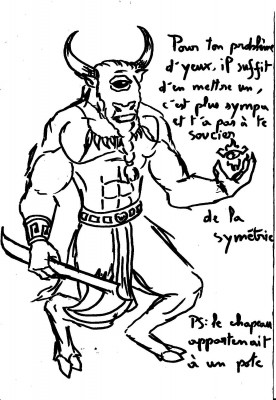 Pour ton problème
d'yeux, il suffit
d'en mettre un,
c'est plus sympa
et t'a pas à te
soucier
de la
symétrie
PS: le chapeau
appartenait
à un pote